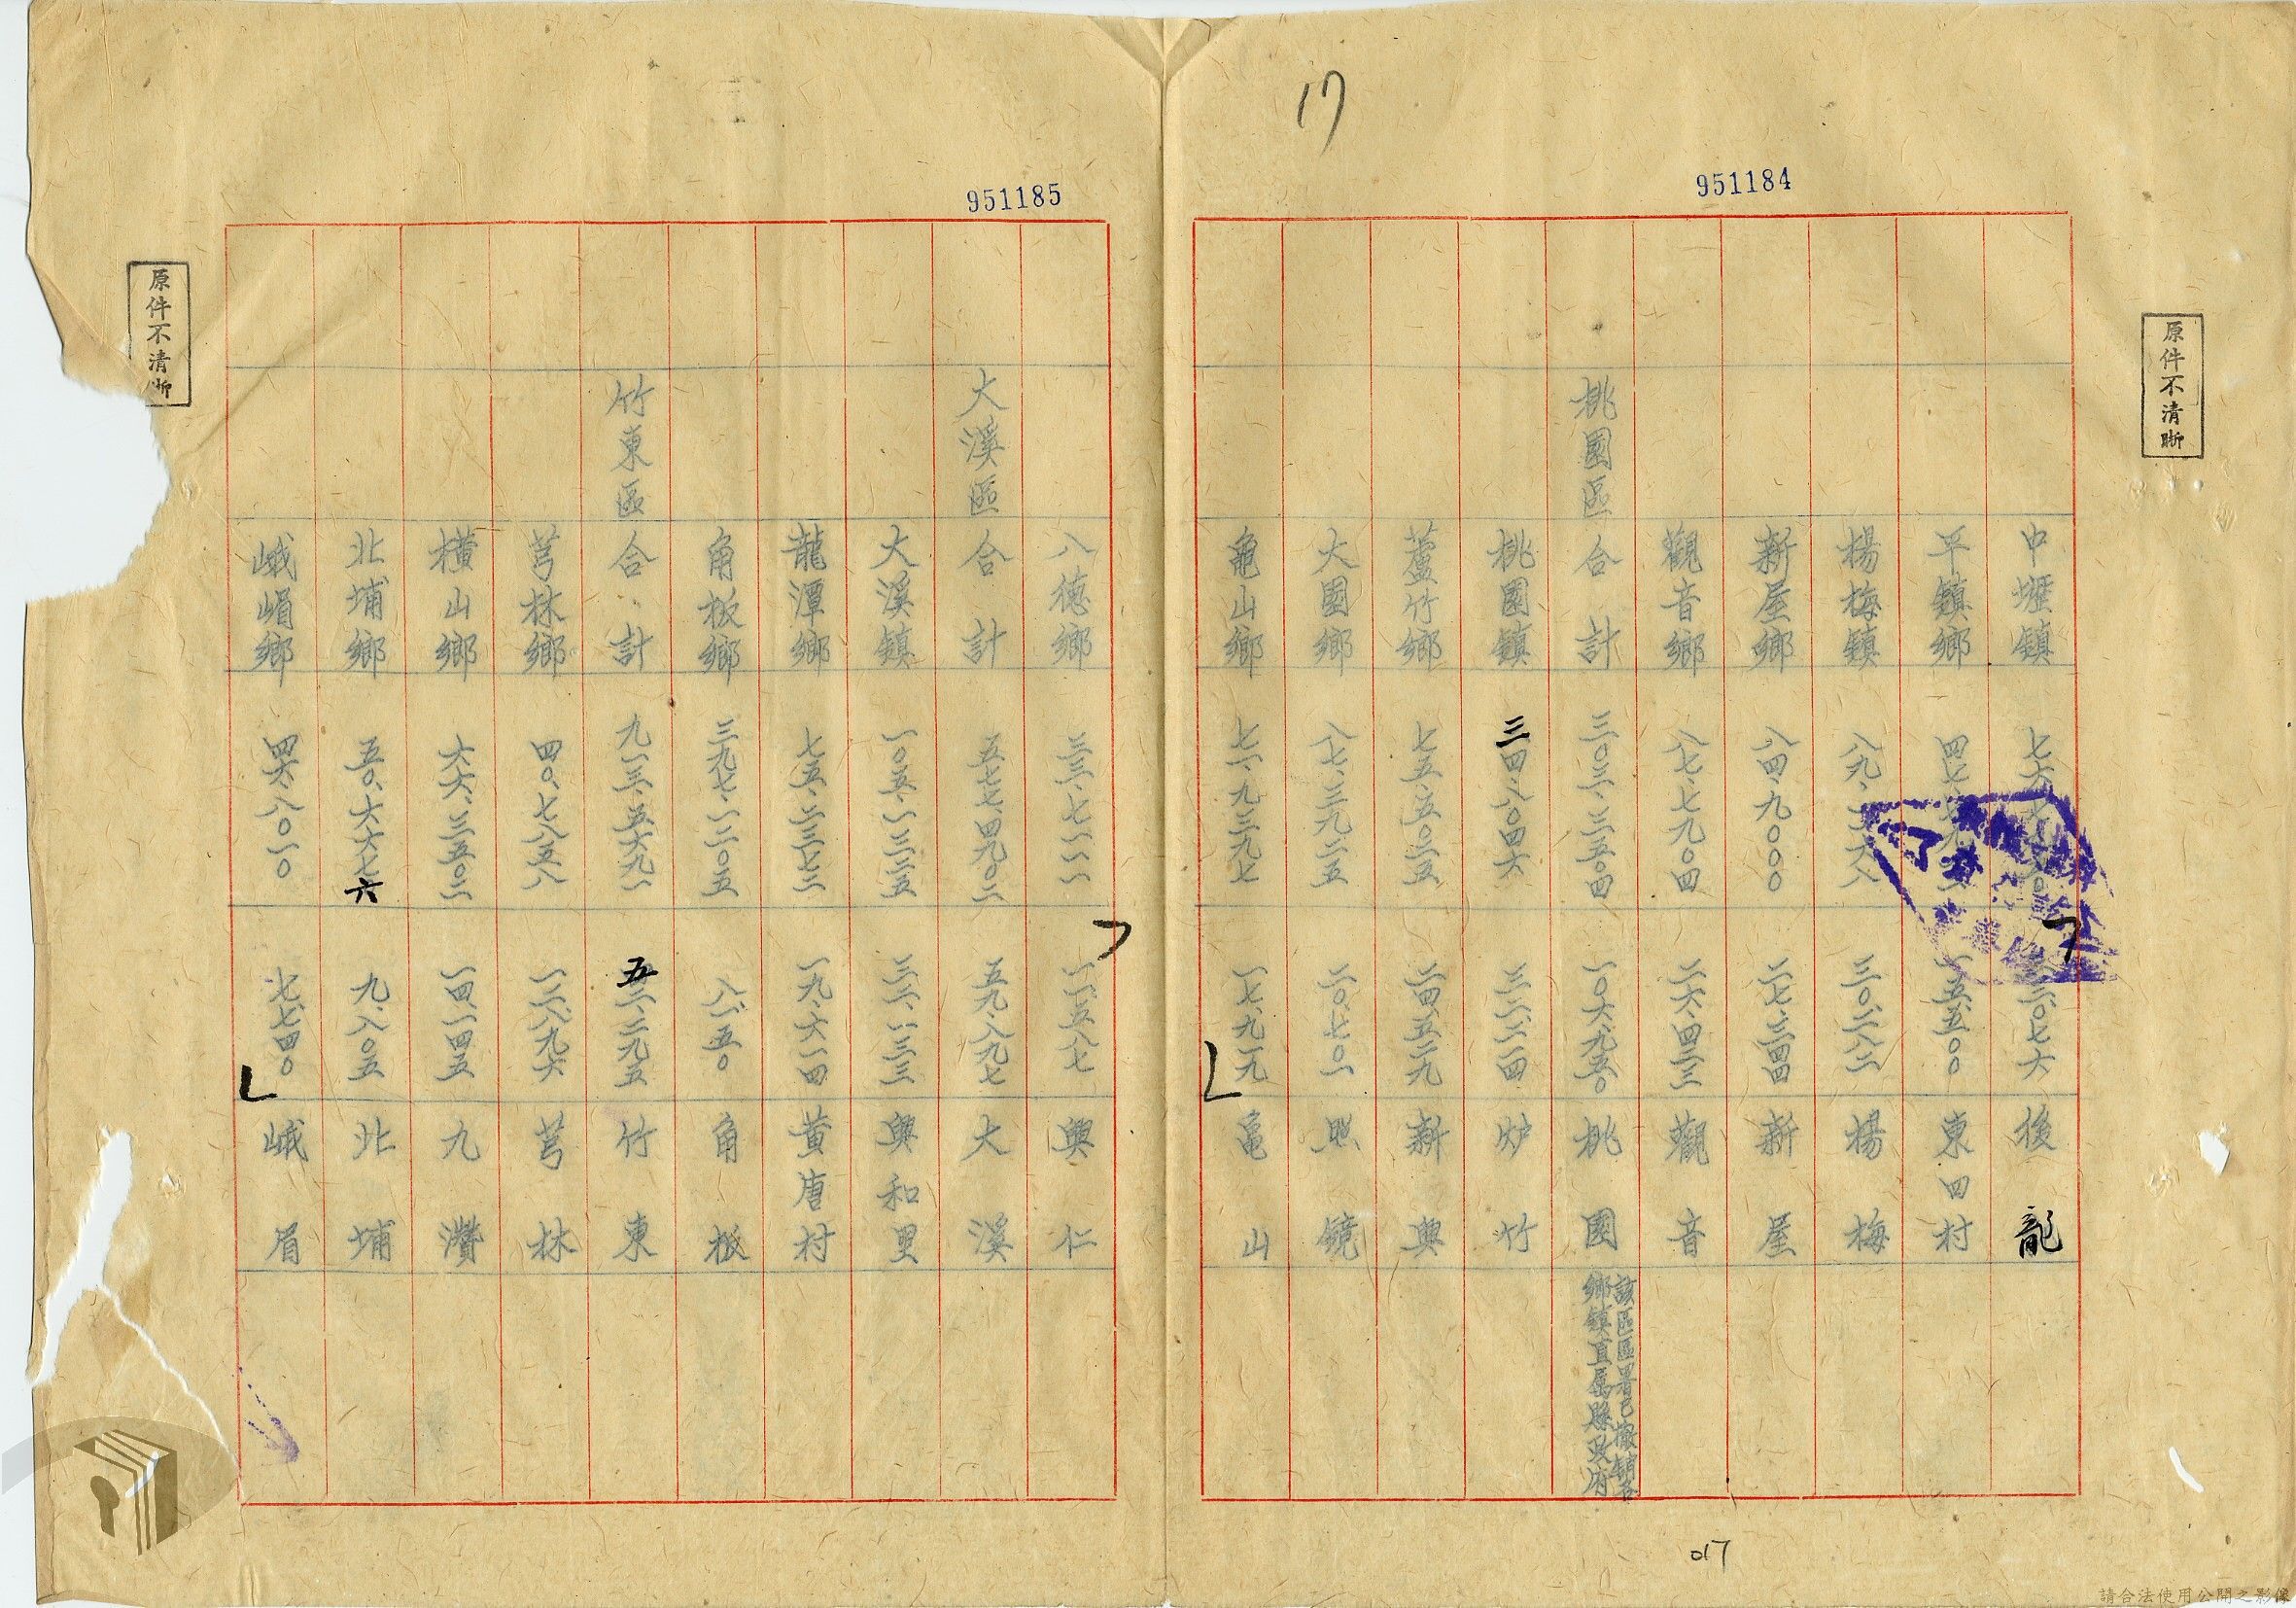 17
951184
原件不清晰
中壢鎮 後龍
平鎮鄉 一五、五〇〇 東四村
楊梅鎮 三〇、二八二 楊梅
新屋鄉 八四、九〇〇〇 二七、三四四 新屋
觀音鄉 八七、七九〇四 二六、四三三 觀音
桃園區 合計 三〇三、三五〇四 一〇六、九五〇 桃園
該區區署已撤銷各
鄉鎮直屬縣政府
桃園鎮 三四、八〇四六 三二、二一四 炉竹
蘆竹鄉 七五、五〇三五 二四、五一九 新興
大園鄉 八七、三九二五 二〇、七〇一 照鏡
龜山鄉 七一、九三九七 一七、九一九 龜山
017
951185
八德鄉 三三、七一一一 一一、五八七 興仁
大溪區 合計 五七七、四九〇二 五九、八九七 大溪
大溪鎮 一〇五、一三三五 三二、一三三 興和里
龍潭鄉 七五、二三七二 一九、六一四 黃唐村
角板鄉 三九七、一二〇五 八、一五〇 角板
竹東區 合計 九一三、五六九一 五二、二九五 竹東
芎林鄉 四〇、七八五八 一二、八九六 芎林
橫山鄉 六六、三五〇二 一四、一四五 九灒
北埔鄉 五〇、六六七六 九、八〇五 北埔
峨嵋鄉 四六、八〇一〇 七、七四〇 峨眉
原件不清晰
請合法使用公開之影像